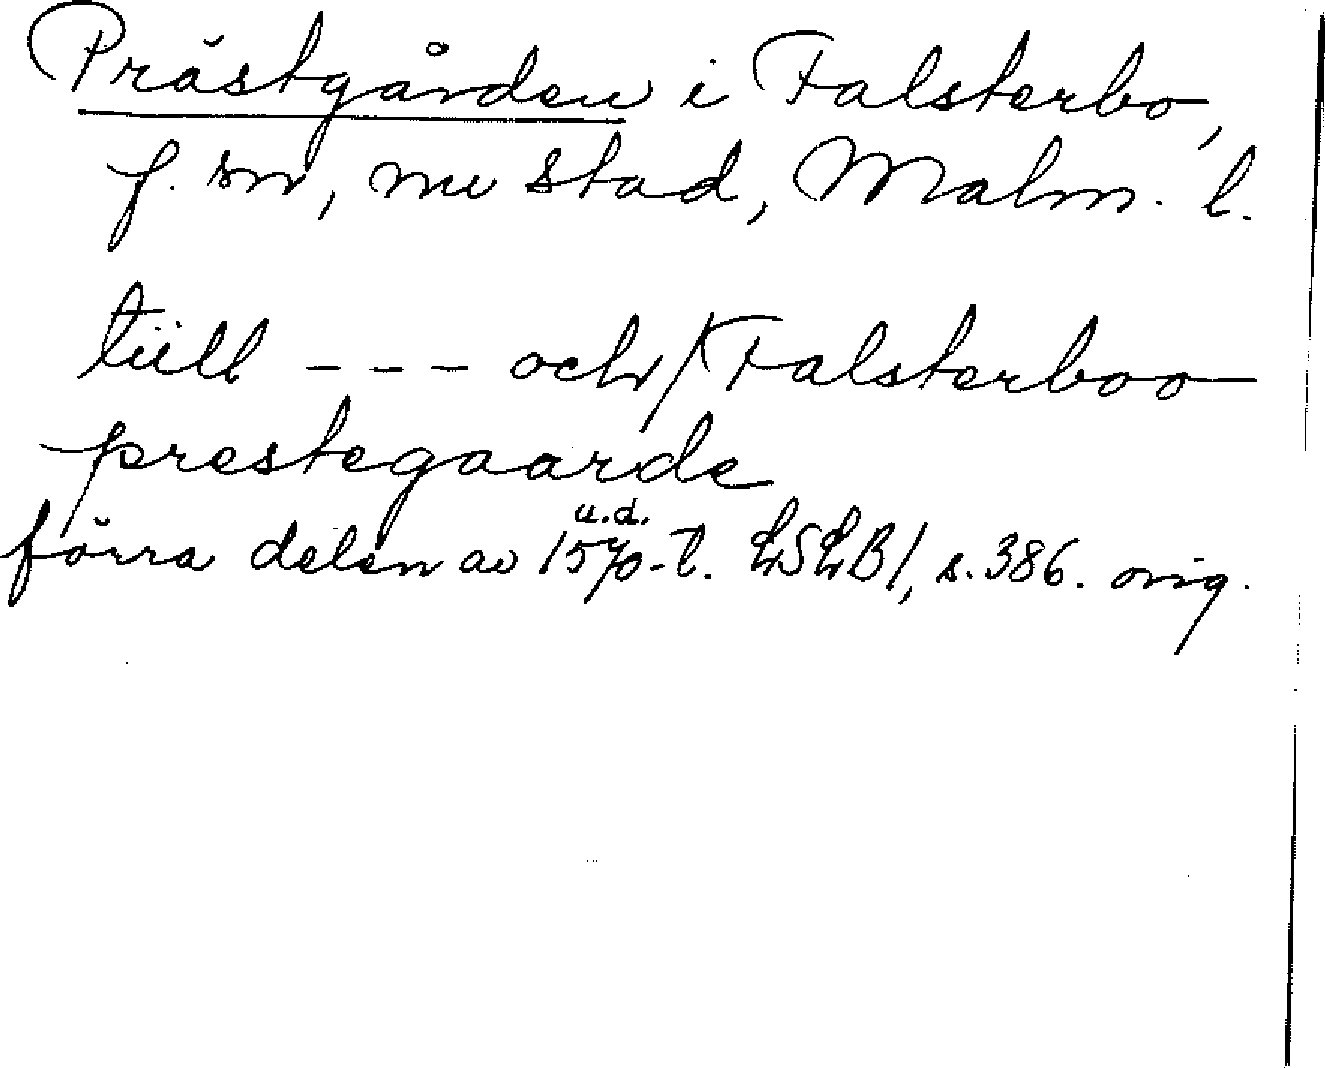 Prästgården i Falsterbo,
f. sn, nu stad, Malm. l.
tiill - - - och/Falsterboo
prestegaarde
u.d.
förra delen av 1570-t. LSLB1, s. 386. orig.